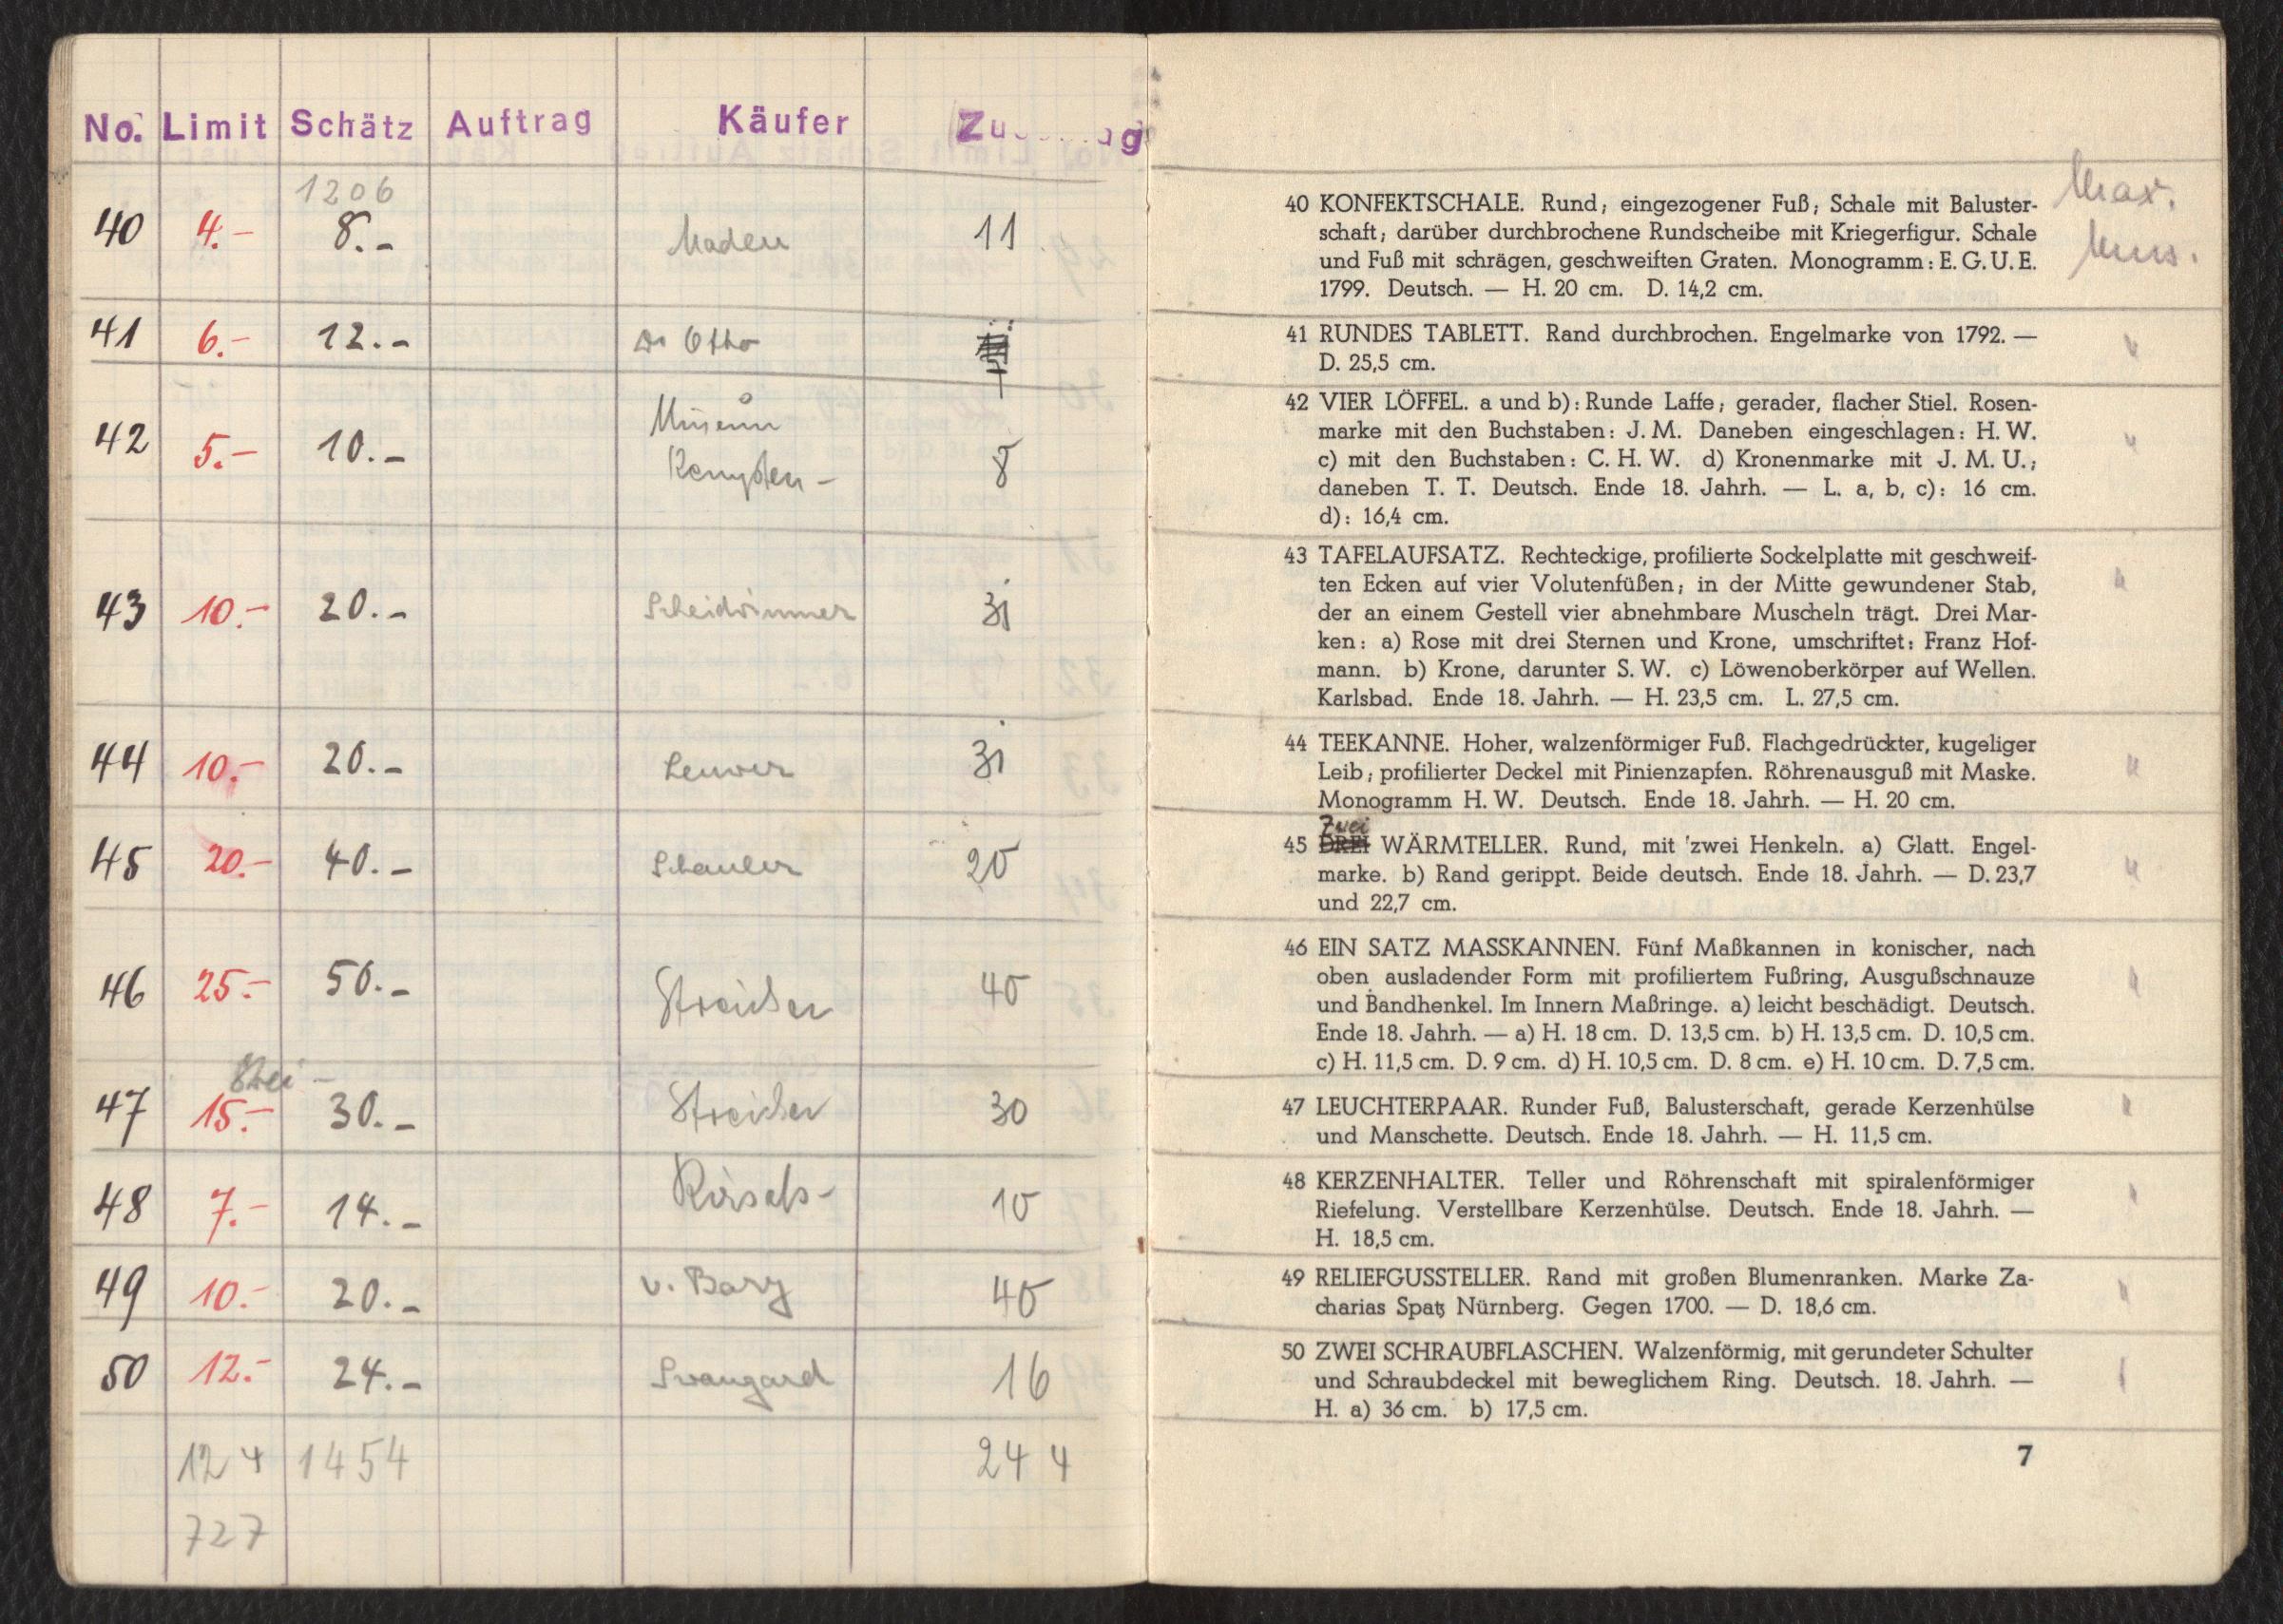 No. Limit Schätz Auftrag Käufer
1206
40 4.- 8.- Maden 11
41 6.- 12.- Dr Otto
42 5.- 10.- Museum
Kempten - 8
43 10.- 20.- Scheidwimmer 31
44 10.- 20.- 31
45 20.- 40.- 20
46 25.- 50.- Streicher 40
47 15.- 30.- Streicher 30
48 7.- 14.- 10
49 10.- 20.- v. Bary 40
50 12.- 24.- Swangard 16
124 1454 244
727
40 KONFEKTSCHALE. Rund; eingezogener Fuß; Schale mit Baluster-
schaft; darüber durchbrochene Rundscheibe mit Kriegerfigur. Schale
und Fuß mit schrägen, geschweiften Graten. Monogramm: E. G. U. E.
1799. Deutsch. — H. 20 cm. D. 14,2 cm.
Max.
Mus.
41 RUNDES TABLETT. Rand durchbrochen. Engelmarke von 1792. —
D. 25,5 cm.
"
42 VIER LÖFFEL. a und b): Runde Laffe; gerader, flacher Stiel. Rosen-
marke mit den Buchstaben: J. M. Daneben eingeschlagen: H. W.
c) mit den Buchstaben: C. H. W. d) Kronenmarke mit J. M. U.;
daneben T. T. Deutsch. Ende 18. Jahrh. — L. a, b, c): 16 cm.
d): 16,4 cm.
"
43 TAFELAUFSATZ. Rechteckige, profilierte Sockelplatte mit geschweif-
ten Ecken auf vier Volutenfüßen; in der Mitte gewundener Stab,
der an einem Gestell vier abnehmbare Muscheln trägt. Drei Mar-
ken: a) Rose mit drei Sternen und Krone, umschriftet: Franz Hof-
mann. b) Krone, darunter S. W. c) Löwenoberkörper auf Wellen.
Karlsbad. Ende 18. Jahrh. — H. 23,5 cm. L. 27,5 cm.
"
44 TEEKANNE. Hoher, walzenförmiger Fuß. Flachgedrückter, kugeliger
Leib; profilierter Deckel mit Pinienzapfen. Röhrenausguß mit Maske.
Monogramm H. W. Deutsch. Ende 18. Jahrh. — H. 20 cm.
"
Zwei
45 DREI WÄRMTELLER. Rund, mit 'zwei Henkeln. a) Glatt. Engel-
marke. b) Rand gerippt. Beide deutsch. Ende 18. Jahrh. — D. 23,7
und 22,7 cm.
"
46 EIN SATZ MASSKANNEN. Fünf Maßkannen in konischer, nach
oben ausladender Form mit profiliertem Fußring, Ausgußschnauze
und Bandhenkel. Im Innern Maßringe. a) leicht beschädigt. Deutsch.
Ende 18. Jahrh. — a) H. 18 cm. D. 13,5 cm. b) H. 13,5 cm. D. 10,5 cm.
c) H. 11,5 cm. D. 9 cm. d) H. 10,5 cm. D. 8 cm. e) H. 10 cm. D. 7,5 cm.
"
47 LEUCHTERPAAR. Runder Fuß, Balusterschaft, gerade Kerzenhülse
und Manschette. Deutsch. Ende 18. Jahrh. — H. 11,5 cm.
"
48 KERZENHALTER. Teller und Röhrenschaft mit spiralenförmiger
Riefelung. Verstellbare Kerzenhülse. Deutsch. Ende 18. Jahrh. —
H. 18,5 cm.
"
49 RELIEFGUSSTELLER. Rand mit großen Blumenranken. Marke Za-
charias Spatz Nürnberg. Gegen 1700. — D. 18,6 cm.
"
50 ZWEI SCHRAUBFLASCHEN. Walzenförmig, mit gerundeter Schulter
und Schraubdeckel mit beweglichem Ring. Deutsch. 18. Jahrh. —
H. a) 36 cm. b) 17,5 cm.
7